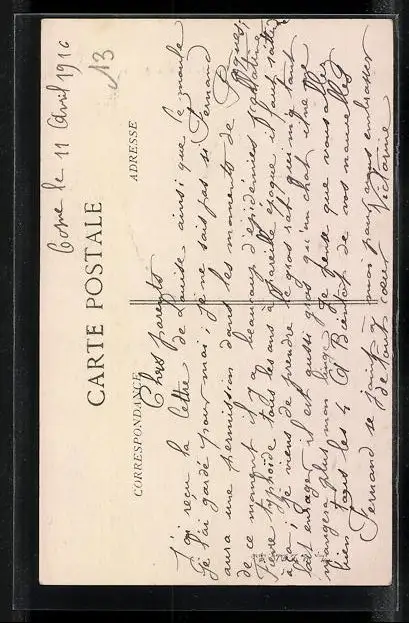 Cosne le 11 Avril 1916
13
CARTE POSTALE
CORRESPONDANCE
ADRESSE
Chers parents
J'ai reçu la lettre de Louise ainsi que le moule
je l'ai gardé pour moi ; je ne sais pas si Fernand
aura une permission dans les moments de Pâques,
de ce moment il y a beaucoup d'épidémies
fièvre typhoïde tous les ans à pareille époque il faut
à ça ; je viens de prendre le gros rat qui m'a tant
fait enrager il est aussi gros qu'un chat il ne me
mangera plus mon linge Je pense que vous allez
bien tous les 4 Bientôt de vos nouvelles
Fernand se joint à moi pour vous embrasser
de tout cœur Victorine